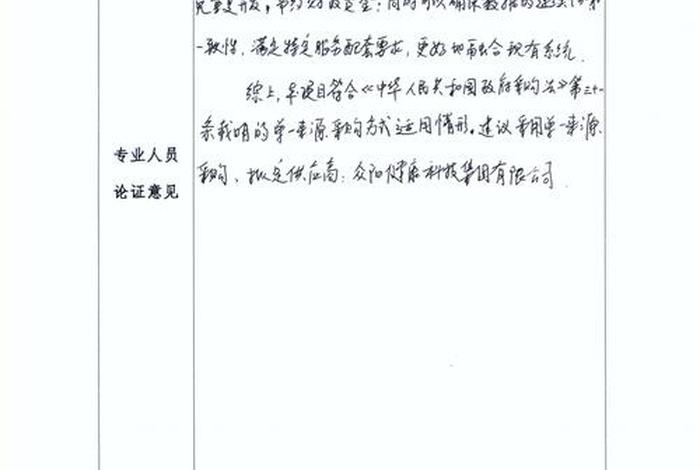 重复开发，节约财政资金；同时可以确保数据的连续性和
一致性，满足特定服务配套要求，更好地融合现有系统．
综上，本项目符合《中华人民共和国政府采购法》第三十一
条载明的单一来源采购方式适用情形。建议采用单一来源
采购、拟定供应商：众阳健康科技集团有限公司．
专业人员
论证意见